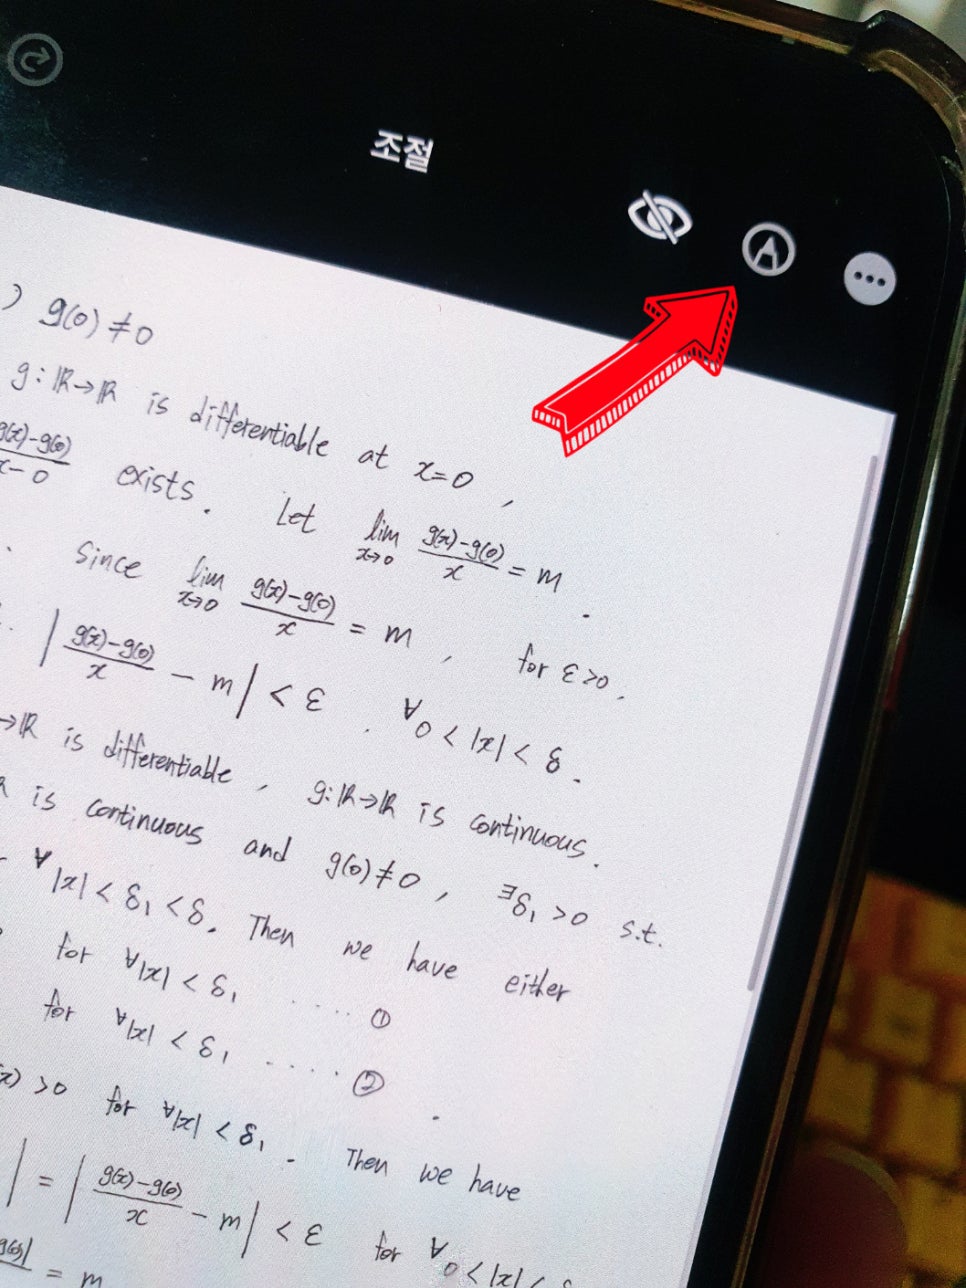 조절
) g(0)≠0
g:ℝ→ℝ is differentiable at x=0,
g(x)-g(0)/x-0 exists. Let lim x→0 g(x)-g(0)/x = m.
Since lim x→0 g(x)-g(0)/x = m, for ε>0.
|g(x)-g(0)/x - m| < ε. ∀0<|x|<δ.
→ℝ is differentiable, g:ℝ→ℝ is continuous.
ℝ is continuous and g(0)≠0, ∃δ₁>0 s.t.
∀|x|<δ₁<δ. Then we have either
for ∀|x|<δ₁ ..... ①
for ∀|x|<δ₁ ..... ②.
>0 for ∀|x|<δ₁. Then we have
| = |g(x)-g(0)/x - m| < ε for ∀0<|x|<δ
= m